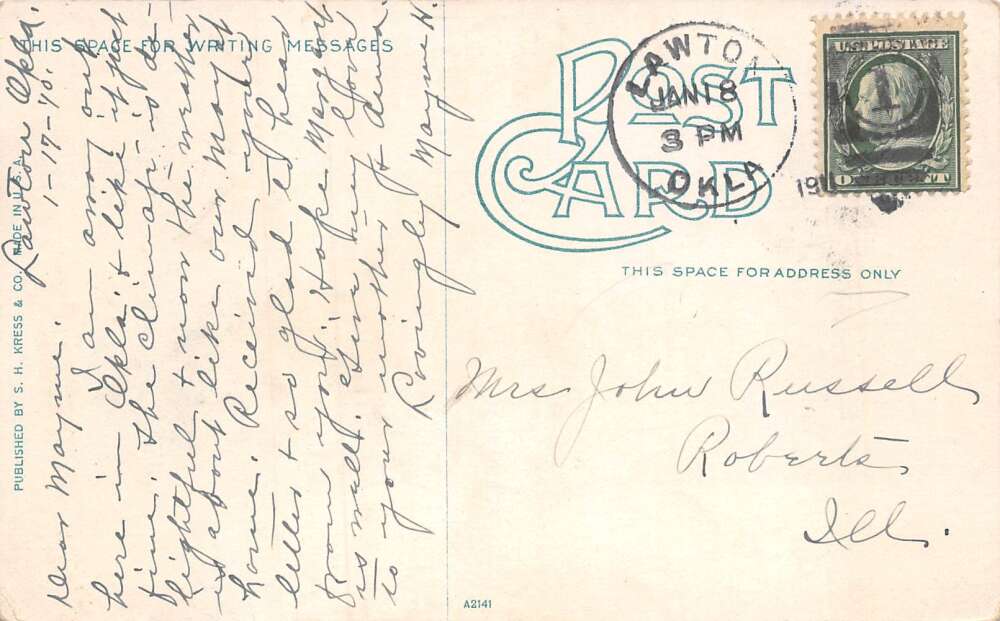 THIS SPACE FOR WRITING MESSAGES
PUBLISHED BY S. H. KRESS & CO. MADE IN U.S.A.
Lawton Okla.
1-17-'10.
Dear Mayme.
I am away out
here in Okla & like it just
fine. The climate is de-
lightful & now the weather
is about like our May at
home. Received your
letter & so glad to hear
from you. Hope Margaret
is well. Give my love
to your mother &
Lovingly Mayme H.
POST CARD
LAWTON
JAN 18
3 PM
OKLA
U.S. POSTAGE
1
THIS SPACE FOR ADDRESS ONLY
Mrs John Russell
Roberts
Ill.
A2141